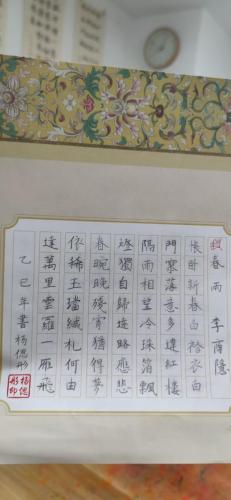 春雨 李商隐
悵卧新春白袷衣白
門寥落意多違紅樓
隔雨相望冷珠箔飄
燈獨自歸遠路應悲
春晼晚殘宵猶得夢
依稀玉璫緘札何由
達萬里雲羅一雁飛
乙巳年書 杨偲彤